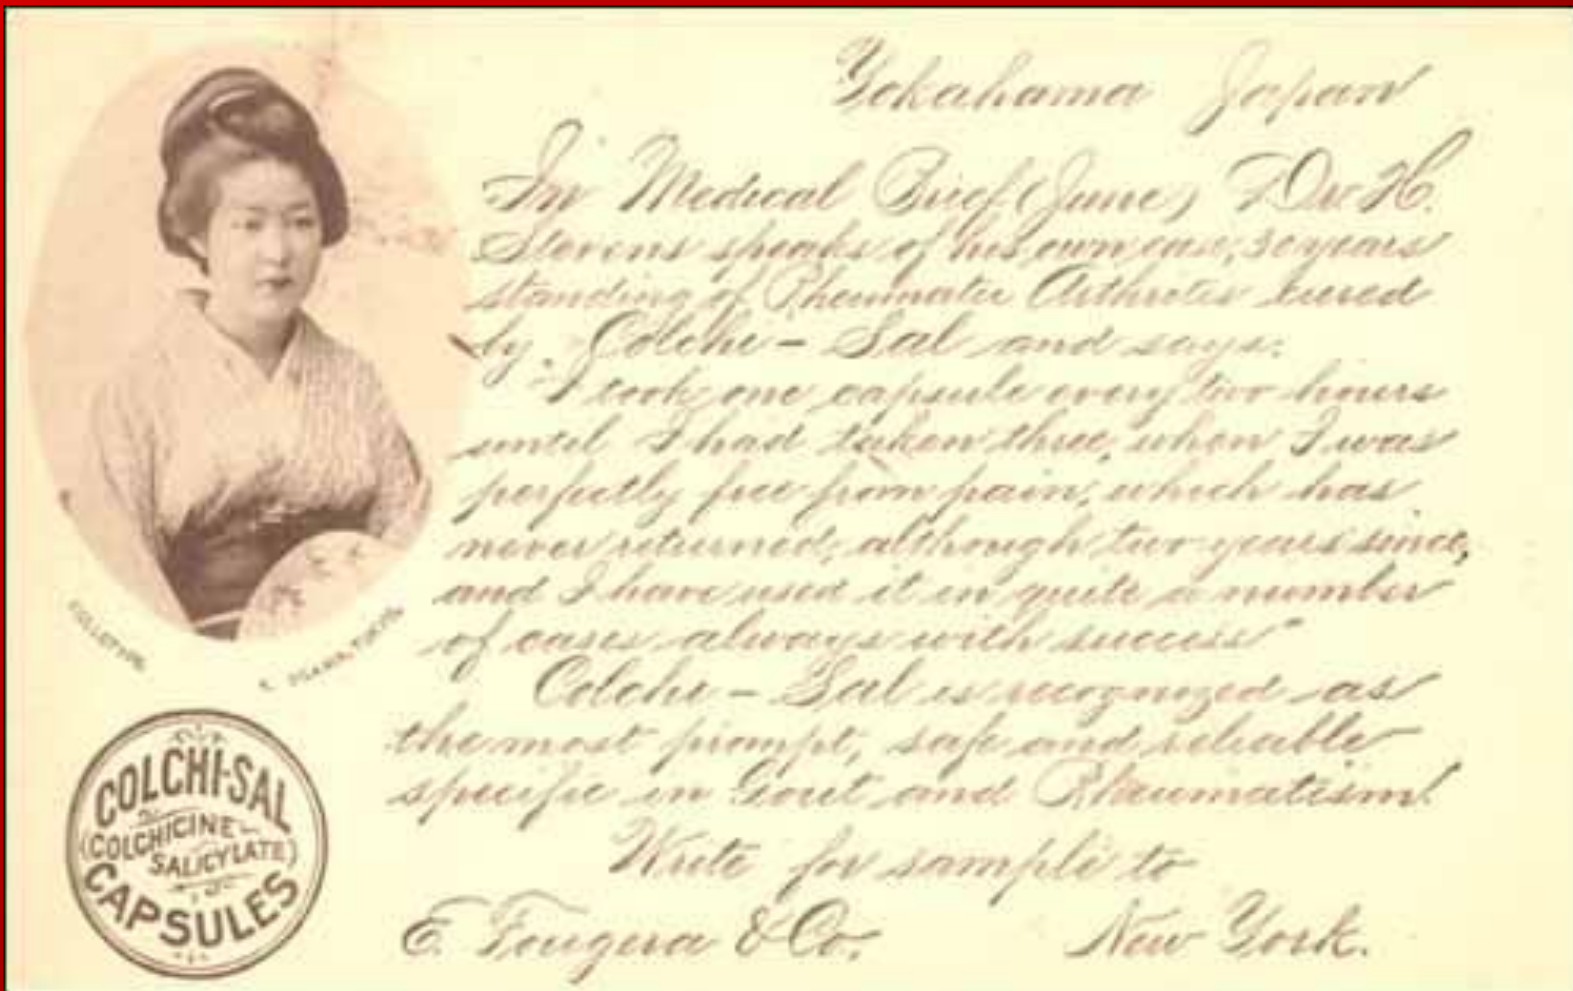 Yokahama Japan
In Medical Brief (June) Dr. H.
Stevens speaks of his own case, 30 years
standing of Rheumatic Arthritis cured
by Colchi-Sal and says:
"I took one capsule every two hours
until I had taken three, when I was
perfectly free from pain, which has
never returned, although two years since,
and I have used it in quite a number
of cases always with success"
Colchi-Sal is recognized as
the most prompt, safe and reliable
specific in Gout and Rheumatism.
Write for sample to
E. Fougera & Co. New York.
COLLOTYPE,
K. OGAWA, TOKYO.
COLCHI-SAL
(COLCHICINE
SALICYLATE)
CAPSULES